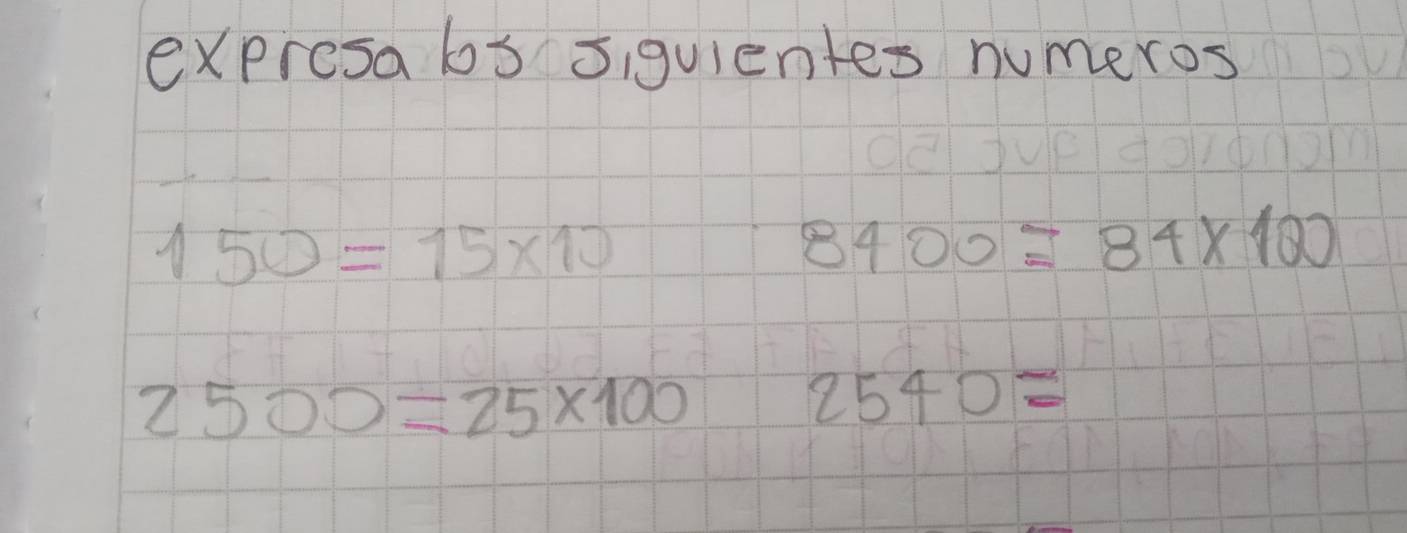 expresa los siguientes numeros
150 = 15x10 8400 = 84x100
2500 = 25x100 2540 =